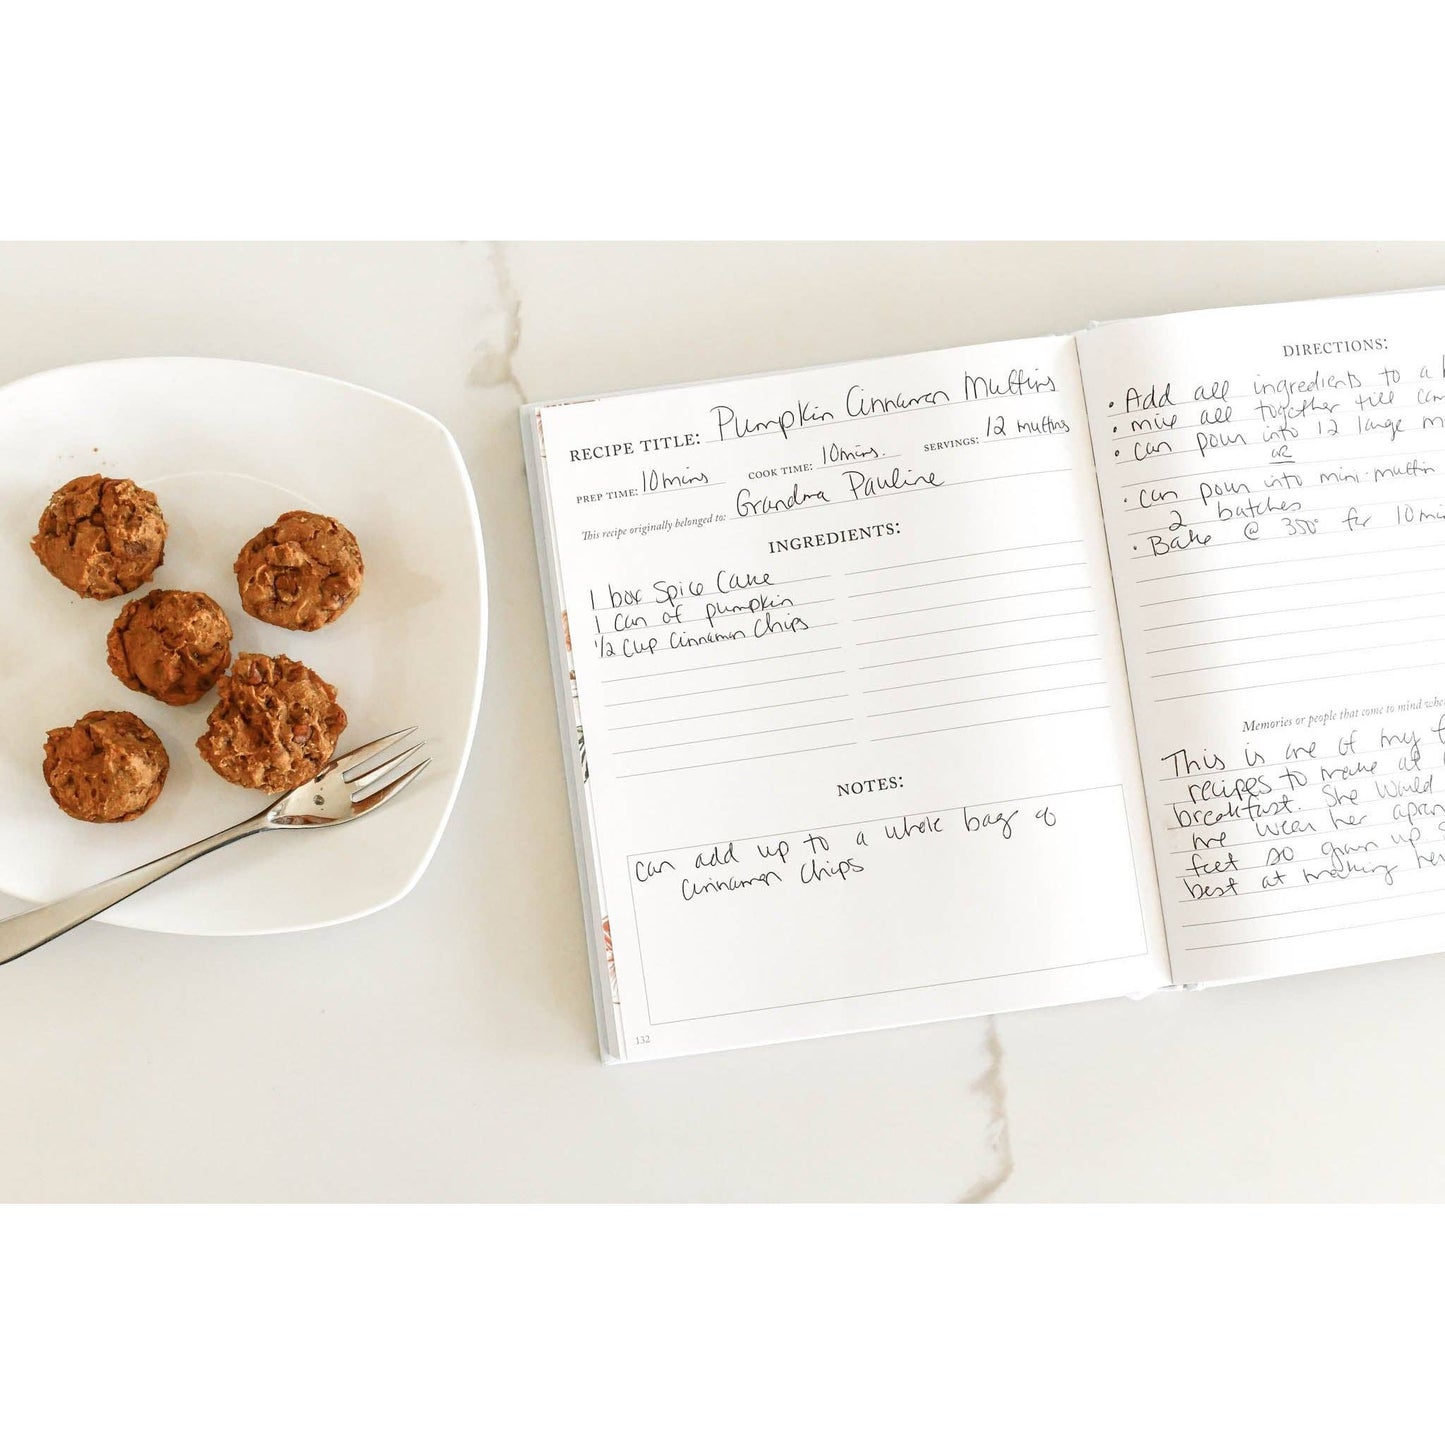 RECIPE TITLE: Pumpkin Cinnamon Muffins
PREP TIME: 10mins COOK TIME: 10mins. SERVINGS: 12 muffins
This recipe originally belonged to: Grandma Pauline
INGREDIENTS:
1 box Spice Cake
1 can of pumpkin
1/2 cup cinnamon chips
NOTES:
can add up to a whole bag of
cinnamon chips
132
DIRECTIONS:
• Add all ingredients to a
• mix all together till
• can pour into 12 large
OR
• can pour into mini-muffin
2 batches
• Bake @ 350° for 10
Memories or people that come to mind
This is one of my
recipes to make at
breakfast. She would
me wear her apron
feet so grown up
best at making